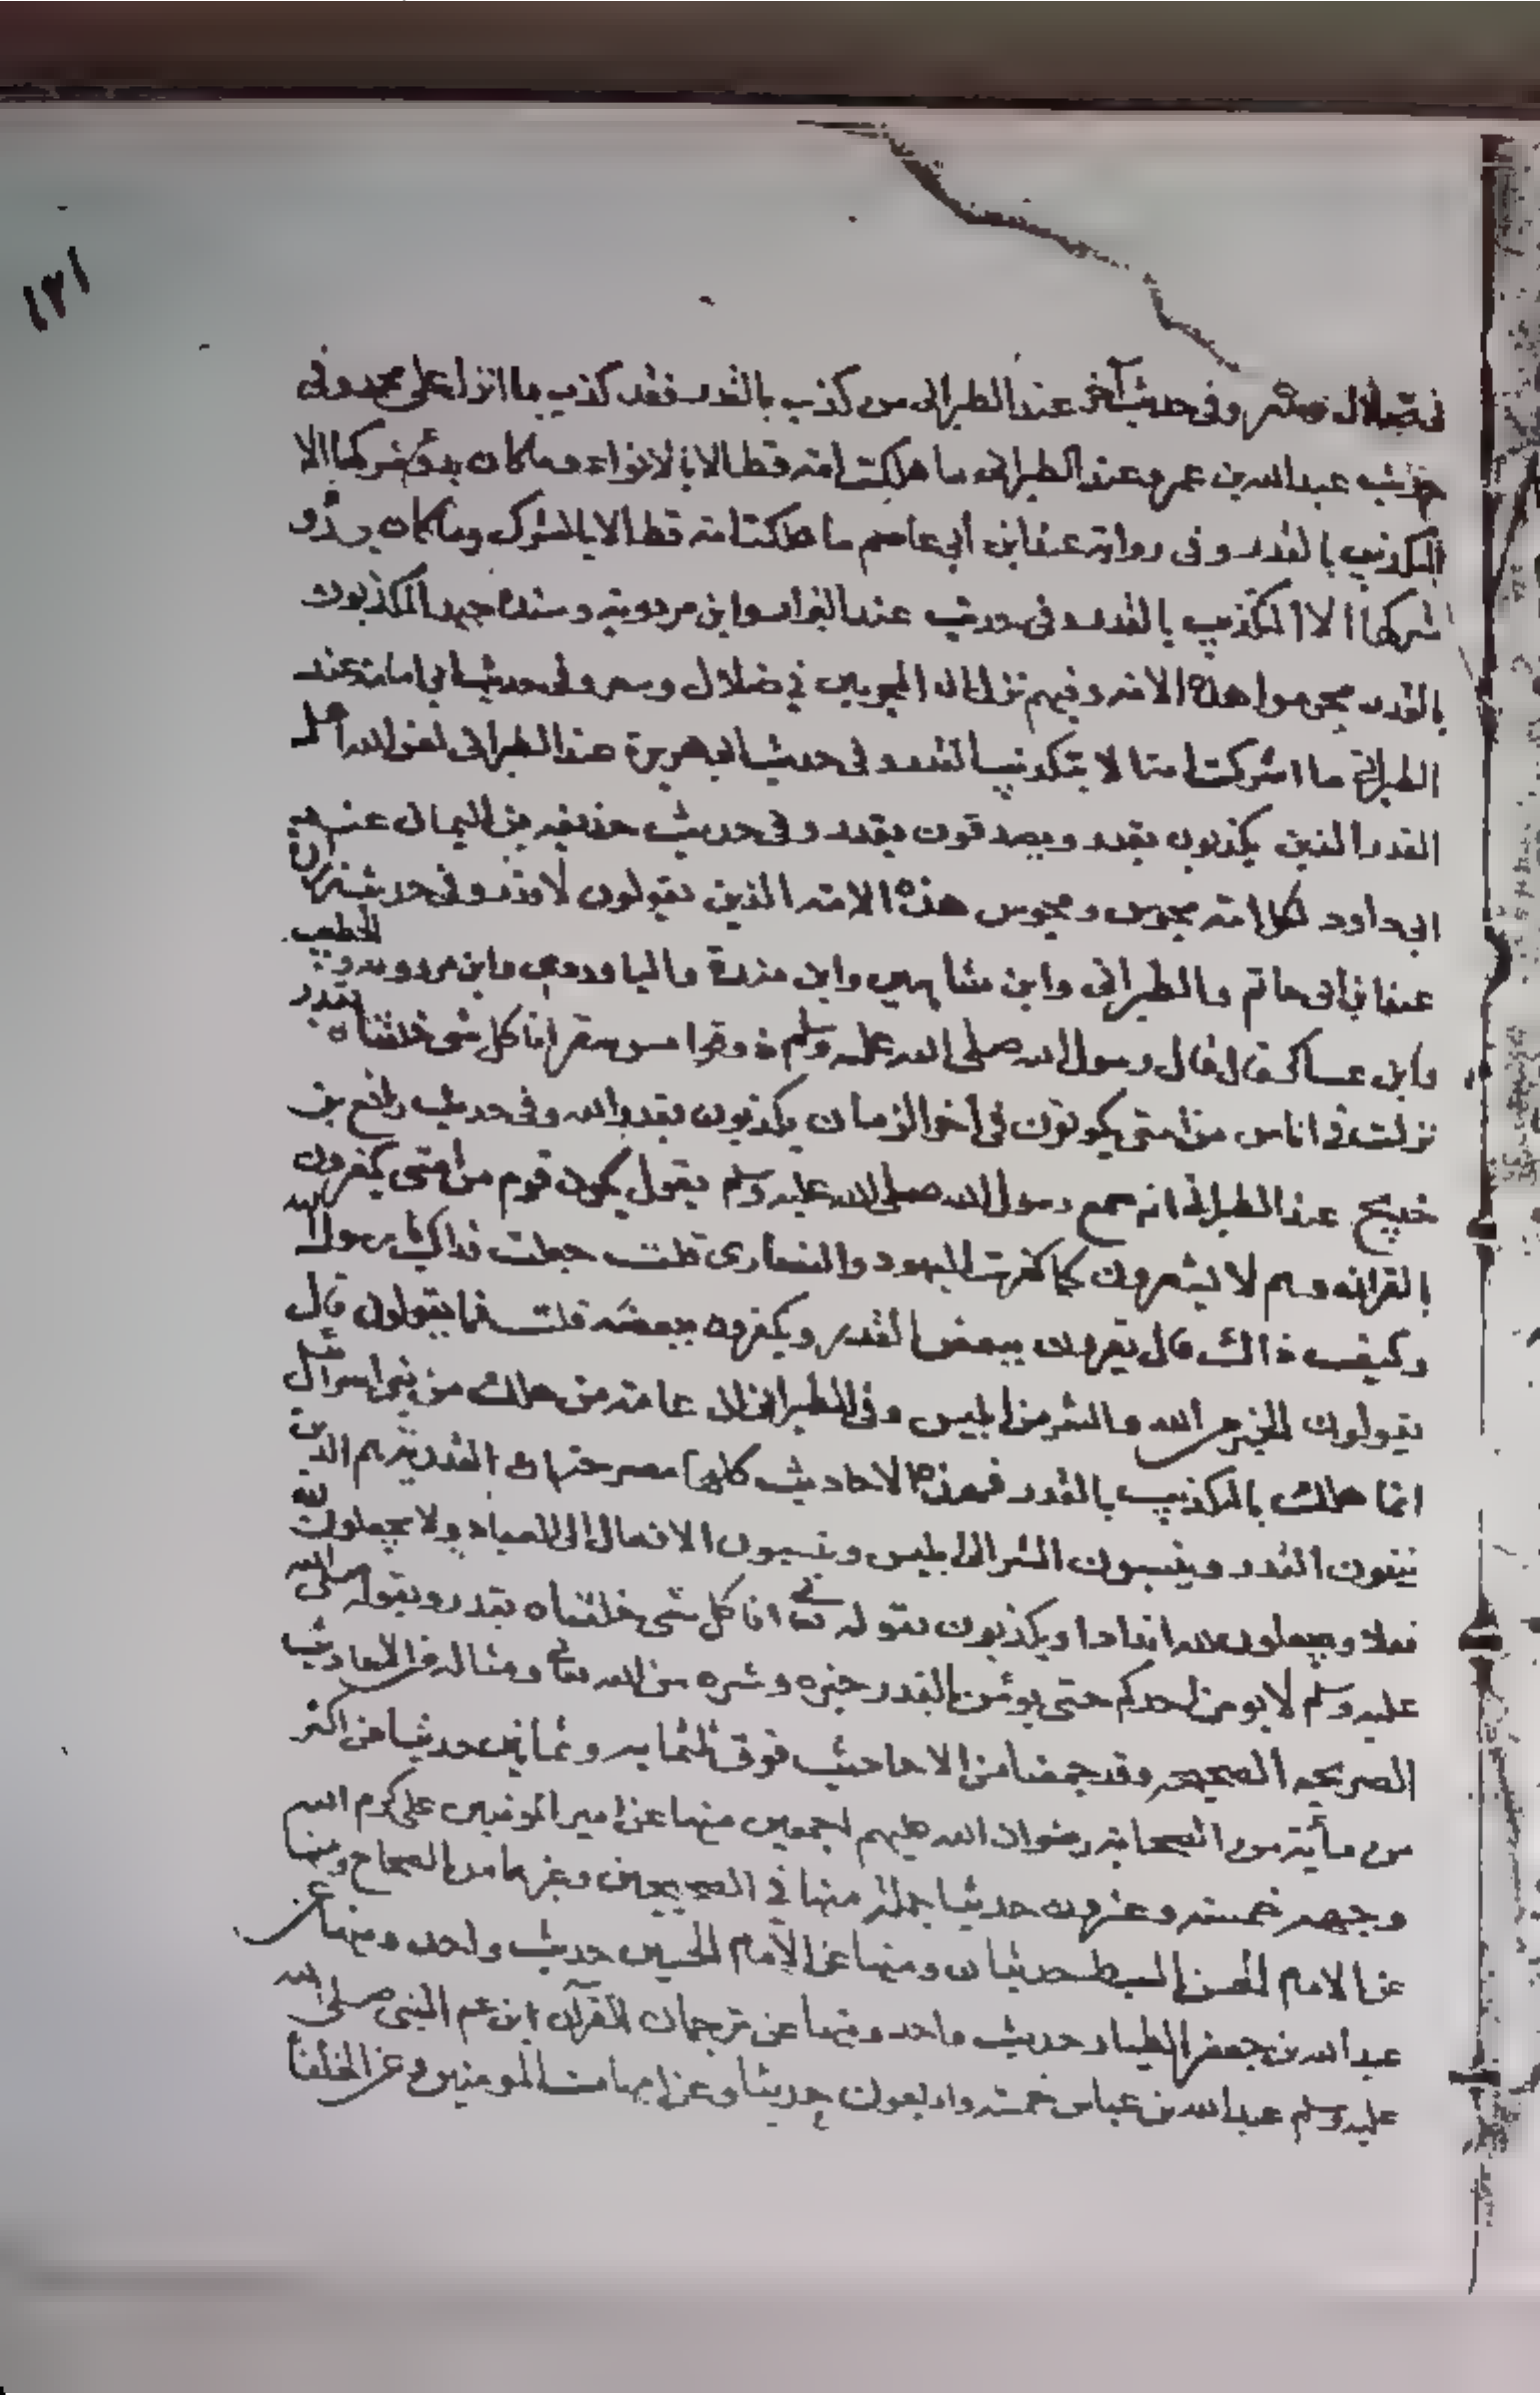 ١٣١
في ضلال وسعر وفي حديث آخر عند الطبراني من كذب بالقدر فقد كذب بما انزل على محمد وفي
حديث عبدالله بن عمرو عند الطبراني ما هلكت امته قط الا بالانواء وما كان بدؤ شركها الا
المكذيب بالقدر وفي رواية عند ابن أبي عاصم ما هلكت امة قط الا بالشرك وما كان بدؤ
شركها الا المكذيب بالقدر وفي حديث عند البزار وابن مردويه وسنده جيد المكذبون
بالقدر مجوس هذه الامة وفيهم نزل ان المجرمين في ضلال وسعر وفي حديث ابي امامة عند
الطبراني ما اشركت امتا لا بتكذيب القدر وفي حديث ابي هريرة عند الطبراني لعن الله اهل
القدر الذين يكذبون بقدر ويصدقون بقدر وفي حديث حذيفه بن اليمان عند
ابي داود لكل امته مجوس ومجوس هذه الامته الذين يقولون لا قدر وفي حديث زرارة
عند ابن ابي حاتم والطبراني وابن شاهين وابن مندة والباوردي وابن مردويه والخطيب
وابن عساكر قال قال رسول الله صلى الله عليه وسلم ذوقوا مس سقر انا كل شي خلقناه بقدر
نزلت في اناس من امتي يكونون في اخر الزمان يكذبون بقدر الله وفي حديث رافع بن
خديج عند الطبراني انه سمع رسول الله صلى الله عليه وسلم يقول يكون قوم من امتي يكفرون
بالقران وهم لا يشعرون كما كفرت اليهود والنصارى قلت جعلت فداك يا رسول الله
وكيف ذاك قال يقرون ببعض القدر ويكفرون ببعضه قلت فما يقولون قال
يقولون الخير من الله والشر من ابليس وفي الطبراني ان عامته من هلك من بني اسرائل
انما هلك بالمكذيب بالقدر فهذه الاحاديث كلها مصرحتهان القدرية هم الذين
ينفون القدر وينسبون الشر الى ابليس وينسبون الافعال الى العباد ولا يجعلون لله
فعلا ويجعلون لله اندادا ويكذبون بقوله تعالى انا كل شي خلقناه بقدر وبقوله صلى الله
عليه وسلم لا يومن احدكم حتى يوئمن بالقدر خيره وشره من الله تعالى ومثاله من الاحاديث
الصريحه الصحيحه وقد جمعنا من الاحاديث فوق ثلثمايه وثمانين حديثا عن اكثر
من مأية من الصحابة رضوان الله عليهم اجمعين منها عن امير المومنين علي كرم الله
وجهه خمسته وعشرون حديثا جملة منها في الصحيحين وغيرهما من الصحاح ومنها
عن الامام الحسن السبط حديثان ومنها عن الامام الحسين حديث واحد ومنها عن
عبد الله بن جعفر الطيار حديث واحد ومنها عن ترجمان القرآن ابن عم النبي صلى الله
عليه وسلم عبد الله بن عباس خمسته واربعون حديثا وعن امهات المومنين وعن الخلفأ